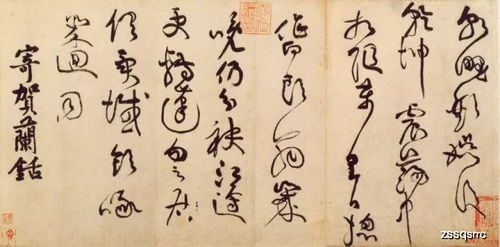 朝野歡娱後
乾坤震蕩中
相隨萬里日總
作白頭翁歲
晚仍分袂江邊
更轉蓬勿言
俱異域飲啄
幾迴同
寄賀蘭銛
zssqsrrc